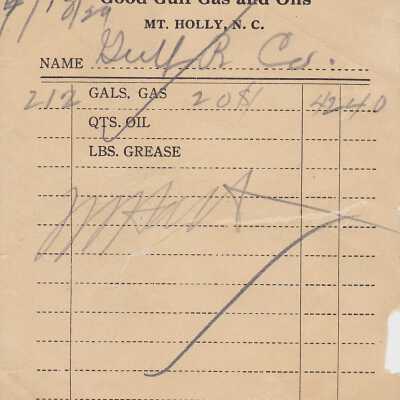 Good Gulf Gas and Oils
MT. HOLLY, N. C.
NAME Gulf R Co.
212 GALS. GAS 20¢ 42 40
QTS. OIL
LBS. GREASE